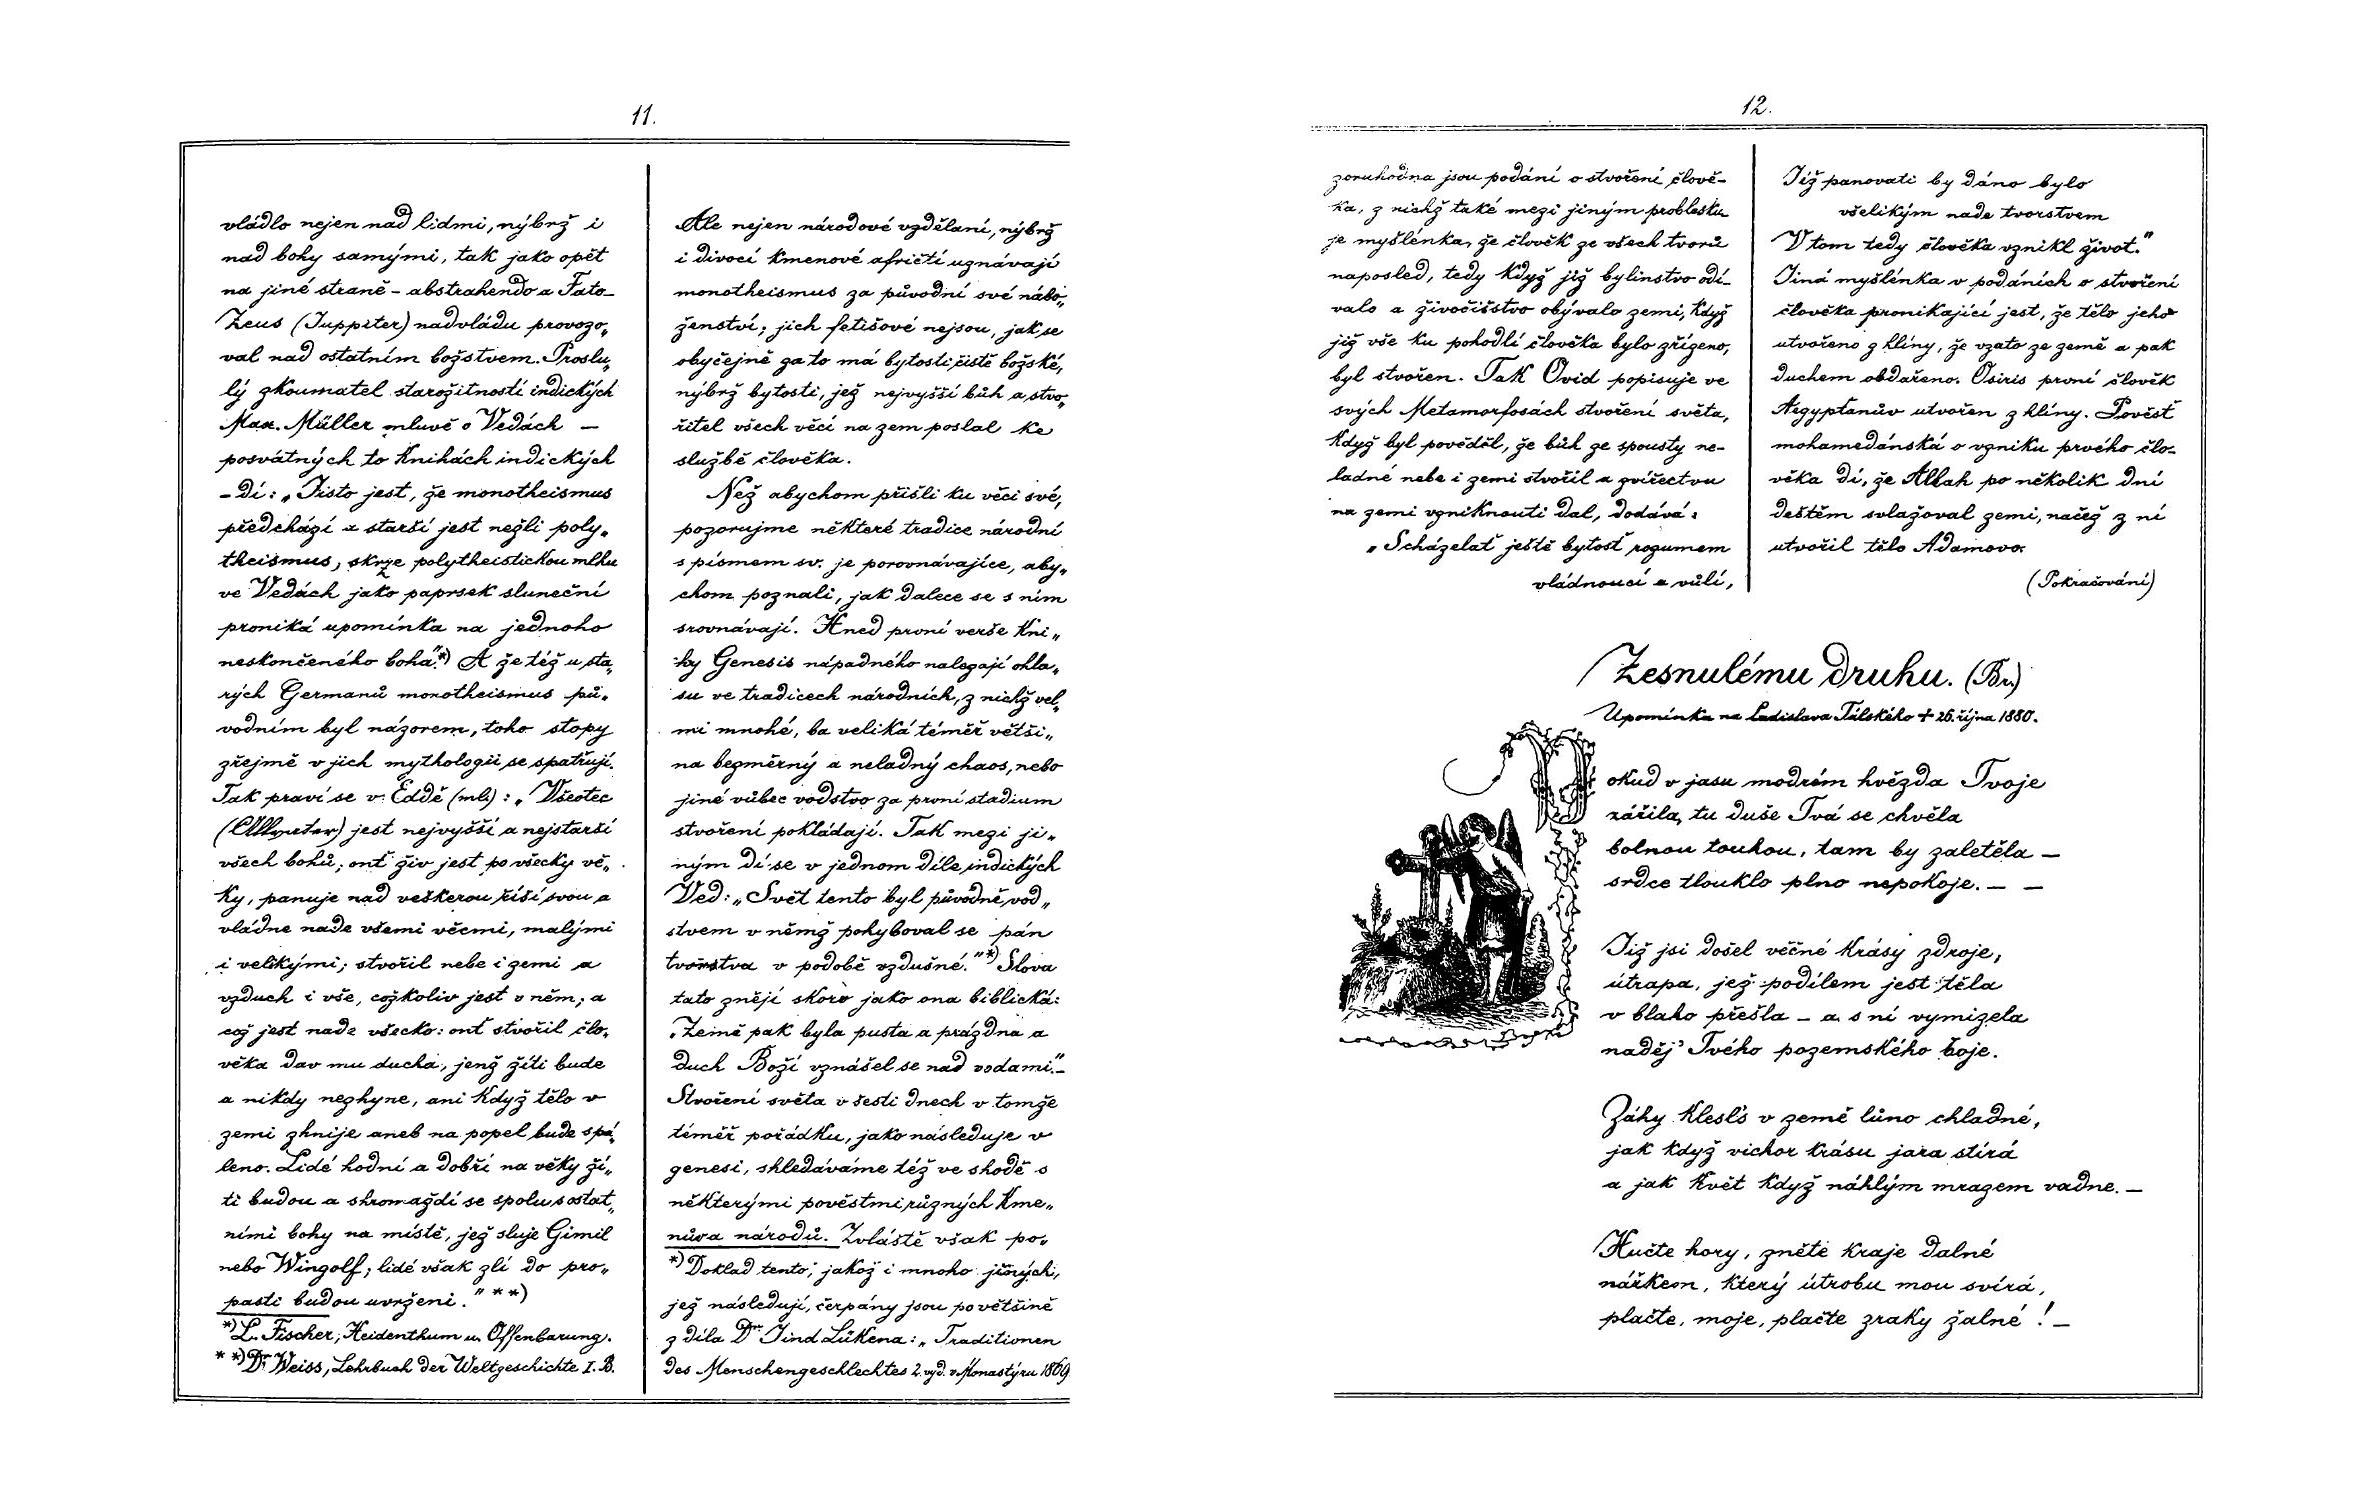 11.
vládlo nejen nad lidmi, nýbrž i
nad bohy samými, tak jako opět
na jiné straně – abstrahendo a Fato–
Zeus (Juppiter) nadvládu provozo„
val nad ostatním božstvem. Proslu„
lý zkoumatel starožitností indických
Max. Müller mluvě o Vedách —
posvátných to knihách indických
– dí: „Jisto jest, že monotheismus
předchází a starší jest nežli poly„
theismus, skrze polytheistickou mlhu
ve Vedách jako paprsek sluneční
proniká upomínka na jednoho
neskončeného boha."*) A že též u sta„
rých Germanů monotheismus pů„
vodním byl názorem, toho stopy
zřejmě v jich mythologii se spatřují.
Tak praví se v Eddě (ml.): „Všeotec
(Allvater) jest nejvyšší a nejstarší
všech bohů; onť živ jest po všecky vě„
ky, panuje nad veškerou říší svou a
vládne nade všemi věcmi, malými
i velikými; stvořil nebe i zemi a
vzduch i vše, cožkoliv jest v něm; a
což jest nade všecko: onť stvořil člo„
věka dav mu ducha, jenž žíti bude
a nikdy nezhyne, ani když tělo v
zemi zhnije aneb na popel bude spá„
leno. Lidé hodní a dobří na věky ží„
ti budou a shromaždí se spolu s ostat„
ními bohy na místě, jež sluje Gimil
nebo Wingolf; lidé však zlí do pro„
pasti budou uvrženi." **)
*) L. Fischer, Heidenthum u. Offenbarung.
**) Dr. Weiss, Lehrbuch der Weltgeschichte I. B.
Ale nejen národové vzdělaní, nýbrž
i divocí kmenové afričtí uznávají
monotheismus za původní své nábo„
ženství; jich fetišové nejsou, jak se
obyčejně za to má bytosti čistě božské,
nýbrž bytosti, jež nejvyšší bůh a stvo„
řitel všech věcí na zem poslal ke
službě člověka.
Než abychom přišli ku věci své,
pozorujme některé tradice národní
s písmem sv. je porovnávajíce, aby„
chom poznali, jak dalece se s ním
srovnávají. Hned první verše kni„
hy Genesis nápadného nalezají ohla„
su ve tradicech národních, z nichž vel„
mi mnohé, ba veliká téměř větši„
na bezměrný a neladný chaos, nebo
jiné vůbec vodstvo za první stadium
stvoření pokládají. Tak mezi ji„
ným dí se v jednom díle indických
Ved: „Svět tento byl původně vod„
stvem v němž pohyboval se pán
tvorstva v podobě vzdušné."*) Slova
tato znějí skoro jako ona biblická:
„Země pak byla pusta a prázdna a
duch Boží vznášel se nad vodami."–
Stvoření světa v šesti dnech v tomže
téměř pořádku, jako následuje v
genesi, shledáváme též ve shodě s
některými pověstmi různých kme„
nův a národů. Zvláště však po„
*) Doklad tento, jakož i mnoho jiných,
jež následují, čerpány jsou po většině
z díla Dr. Jind Lükena: „Traditionen
des Menschengeschlechtes 2. vyd. v Monastýru 1869
12.
zoruhodna jsou podání o stvoření člově–
ka, z nichž také mezi jiným problesku
je myšlénka, že člověk ze všech tvorů
naposled, tedy když již bylinstvo odí–
valo a živočišstvo obývalo zemi, když
již vše ku pohodlí člověka bylo zřízeno,
byl stvořen. Tak Ovid popisuje ve
svých Metamorfosách stvoření světa,
když byl pověděl, že bůh ze spousty ne–
ladné nebe i zemi stvořil a zvířectvu
na zemi vzniknouti dal, dodává:
„Scházelať ještě bytosť rozumem
vládnoucí a vůlí,
Jíž panovati by dáno bylo
všelikým nade tvorstvem
V tom tedy člověka vznikl život."
Jiná myšlénka v podáních o stvoření
člověka pronikající jest, že tělo jeho
utvořeno z hlíny, že vzato ze země a pak
duchem obdařeno. Osiris první člověk
Aegyptanův utvořen z hlíny. Pověsť
mohamedánská o vzniku prvého člo–
věka dí, že Allah po několik dní
deštěm svlažoval zemi, načež z ní
utvořil tělo Adamovo.
(Pokračování)
Zesnulému druhu. (Br.)
Upomínka na Ladislava Tálského + 26. října 1880.
Pokud v jasu modrém hvězda Tvoje
zářila, tu duše Tvá se chvěla
bolnou touhou, tam by zaletěla —
srdce tlouklo plno nepokoje. — —
Již jsi došel věčné krásy zdroje,
útrapa, jež podílem jest těla
v blaho přešla – a s ní vymizela
naděj' Tvého pozemského boje.
Záhy klesl's v země lůno chladné,
jak když vichor krásu jara stírá
a jak květ když náhlým mrazem vadne. —
Hučte hory, zněte kraje dalné
nářkem, který útrobu mou svírá,
plačte, moje, plačte zraky žalné! —